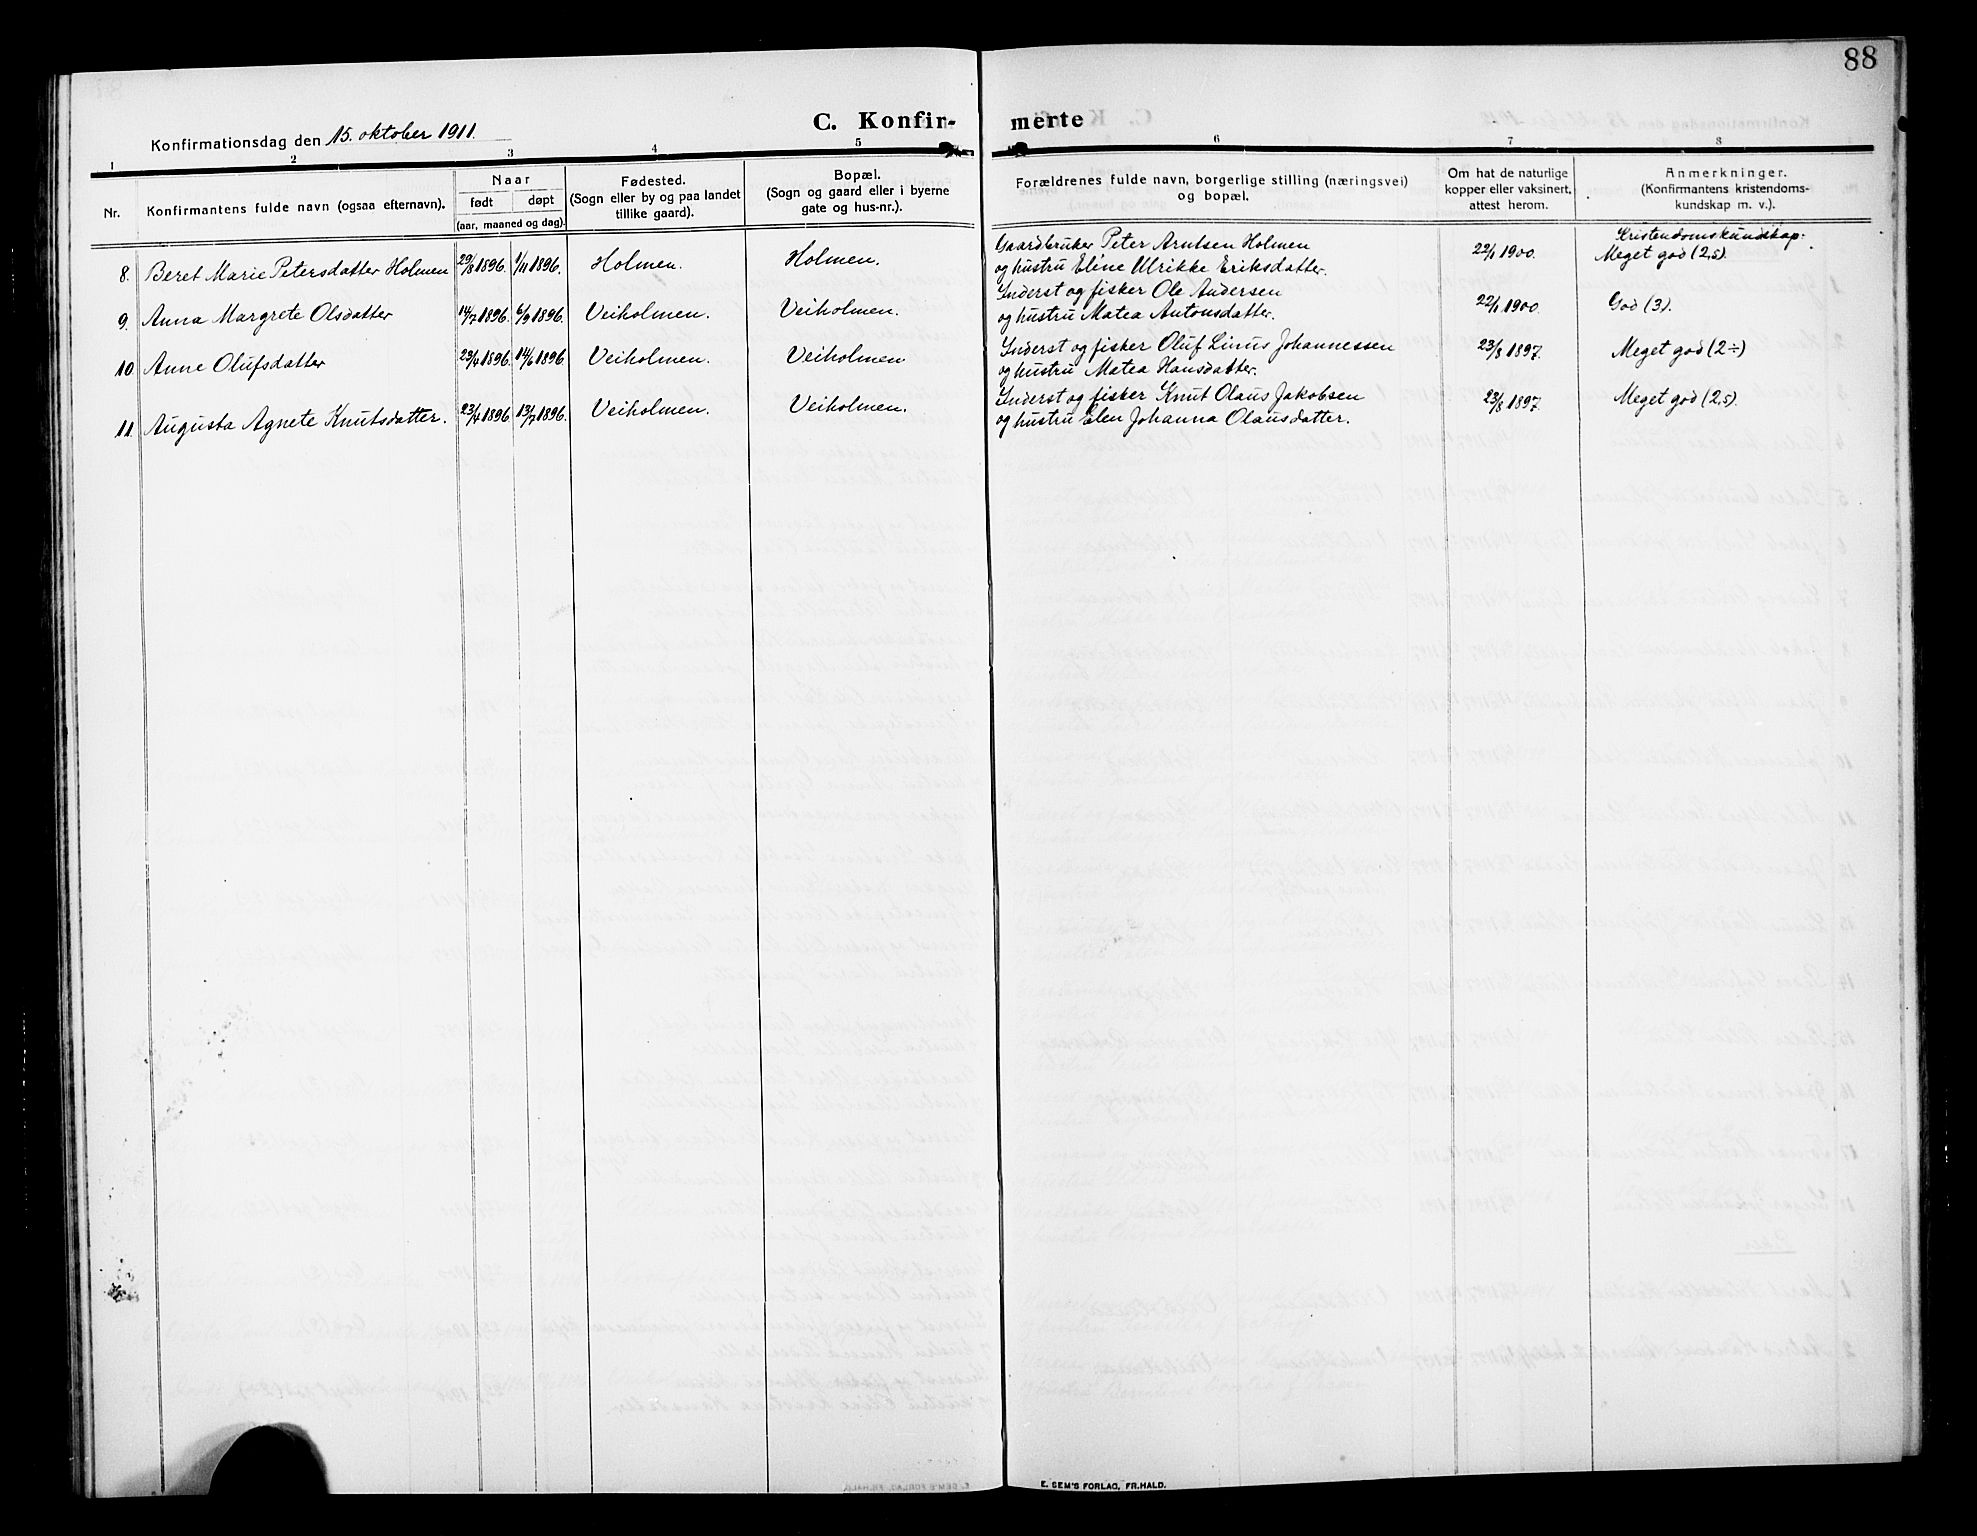 88
Konfirmationsdag den 15. oktober 1911.
C. Konfir- merte
1 2 3 4 5 6 7 8
Nr.
Konfirmantens fulde navn (ogsaa efternavn).
Naar
født døpt
(aar, maaned og dag).
Fødested.
(Sogn eller by og paa landet
tillike gaard).
Bopæl.
(Sogn og gaard eller i byerne
gate og hus-nr.).
Forældrenes fulde navn, borgerlige stilling (næringsvei)
og bopæl.
Om hat de naturlige
kopper eller vaksinert,
attest herom.
Anmerkninger.
(Konfirmantens kristendoms-
kundskap m. v.).
8. Beret Marie Petersdatter Holmen 29/8 1896. 1/11 1896. Holmen. Holmen.
Gaardbruker Peter Arntsen Holmen
og hustru Eline Ulrikke Eriksdatter.
22/1 1900.
Kristendomskundskap:
Meget god (2,5).
9. Anna Margrete Olsdatter 14/7 1896. 6/9 1896. Veiholmen. Veiholmen.
Inderst og fisker Ole Andersen
og hustru Matea Antonsdatter.
22/1 1900.
God (3).
10. Anne Olufsdatter 1896. 14/6 1896. Veiholmen. Veiholmen.
Inderst og fisker Oluf Linus Johannessen
og hustru Matea Hansdatter.
23/8 1897.
Meget god (2÷)
11. Augusta Agnete Knutsdatter. 1896. 13/7 1896. Veiholmen. Veiholmen.
Inderst og fisker Knut Olaus Jakobsen
og hustru Elen Johanna Olausdatter.
23/8 1897.
Meget god (2,5).
E. SEM'S FORLAG, FR.HALD.